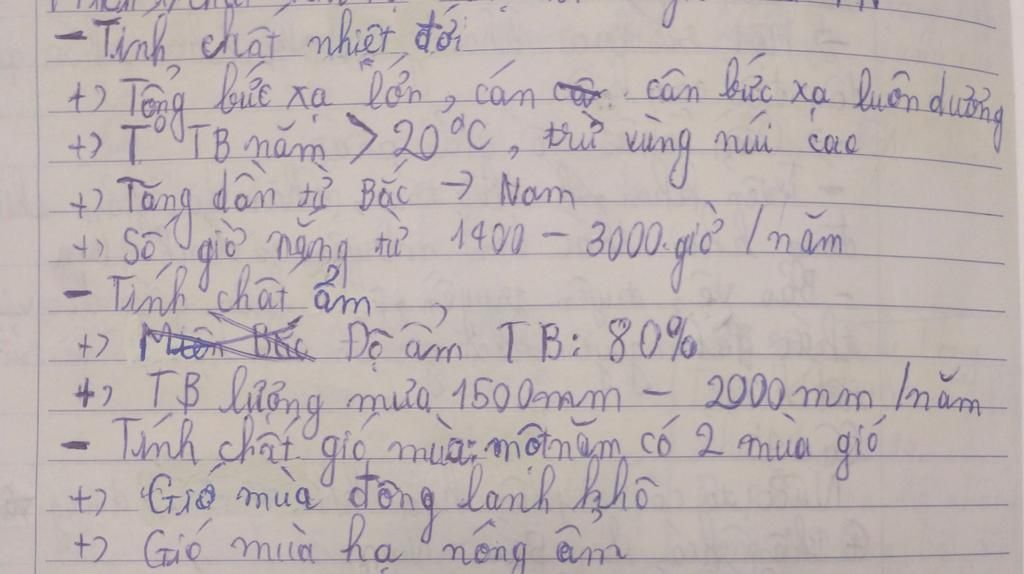 - Tính chất nhiệt đới
+) Tổng bức xạ lớn, cán cân bức xạ luôn dương
+) T° TB năm > 20°C, trừ vùng núi cao
+) Tăng dần từ Bắc → Nam
+) Số giờ nắng từ 1400 - 3000 giờ / năm
- Tính chất ẩm
+) Miền Bắc Độ ẩm TB: 80%
+) TB lượng mưa 1500mm - 2000mm /năm
- Tính chất gió mùa: một năm có 2 mùa gió
+) Gió mùa đông lạnh khô
+) Gió mùa hạ nóng ẩm